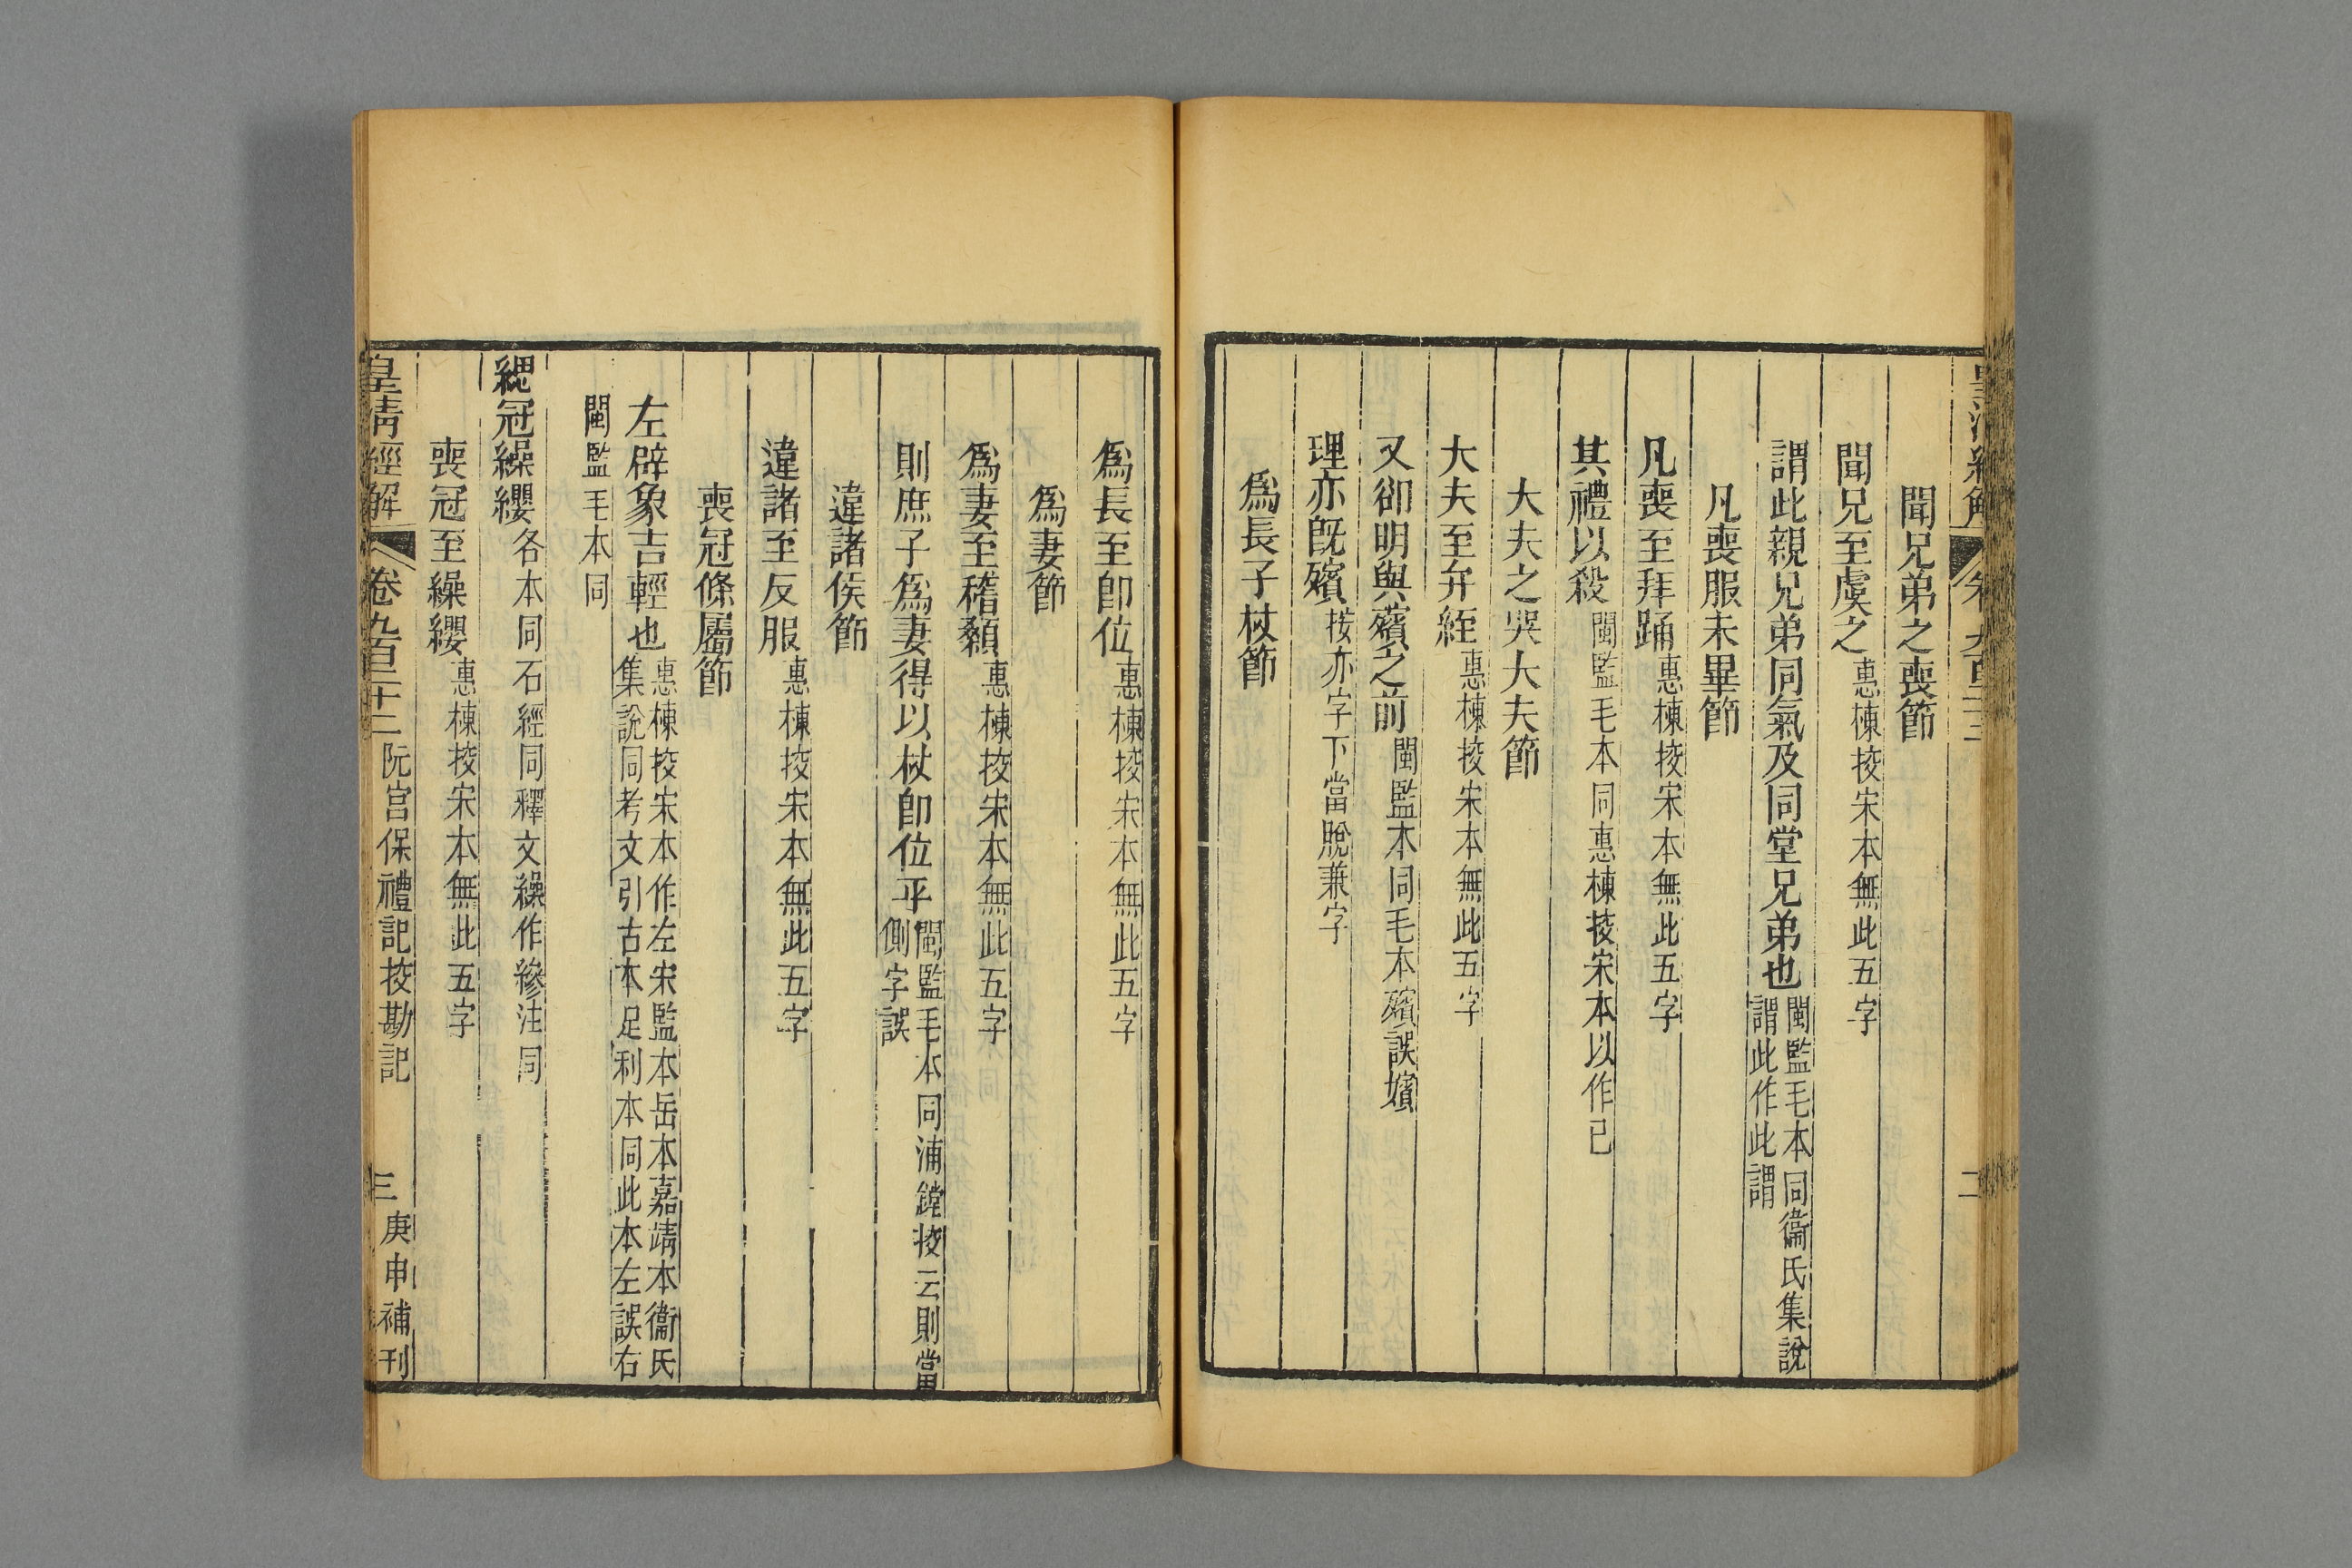 聞兄弟之喪節
聞兄至虞之惠棟挍宋本無此五字
謂此親兄弟同氣及同堂兄弟也閩監毛本同衞氏集說謂此作此謂
凡喪服未畢節
凡喪至拜踊惠棟挍宋本無此五字
其禮以殺閩監毛本同惠棟挍宋本以作已
大夫之哭大夫節
大夫至弁絰惠棟挍宋本無此五字
又卻明與殯之前閩監本同毛本殯誤嬪
理亦旣殯按亦字下當脫兼字
爲長子杖節
爲長至卽位惠棟挍宋本無此五字
爲妻節
爲妻至稽顙惠棟挍宋本無此五字
則庶子爲妻得以杖卽位乎閩監毛本同浦鏜挍云則當側字誤
違諸侯節
違諸至反服惠棟挍宋本無此五字
喪冠條屬節
左辟象吉輕也惠棟挍宋本作左宋監本岳本嘉靖本衞氏集說同考文引古本足利本同此本左誤右
閩監毛本同
緦冠繰纓各本同石經同釋文繰作縿注同
喪冠至繰纓惠棟挍宋本無此五字
皇清經解 卷九百三十二 阮宮保禮記挍勘記 三 庚申補刊